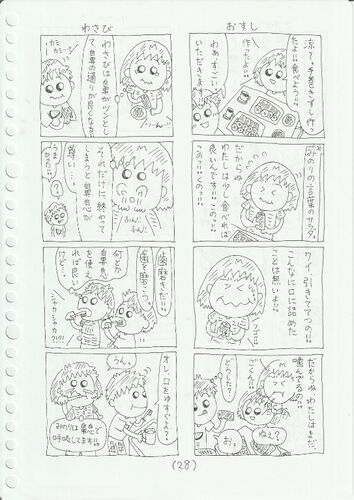 おすし
涼て、手巻きずし作っ
たよ!!食べよう!!
作ったよ!!
わあ、すごい
いただきます!
※みのりの言葉のサラダ。
だからぬ、
わたしは少し食べれば
良いんです!!この。
このっ!!このっ!!!
ワイ、引きててつの!!
こんなに口に詰めた
ことは無いよ!!
フゴ!!
だからぬ、わたしはまだ、
噛んでるの!!
ごくん!!
どうした?
ねぇ?
お。
わさび
わさびは自鼻がツンとし
て自鼻の通りが良くなる!!
カミ
カミ…
つーん
それだけに終わって
しまうと自鼻息が
尊い…
うまっ!!
?
ふん
ふん
歯磨きだ!!
歯を磨こう。
何とか
自鼻息
を使え
れば良い
けど…
シャカ
シャカ?!!
オレ、口をゆすぐよ?
うん。
みのりは鼻息で
呼吸してます!!
(28)